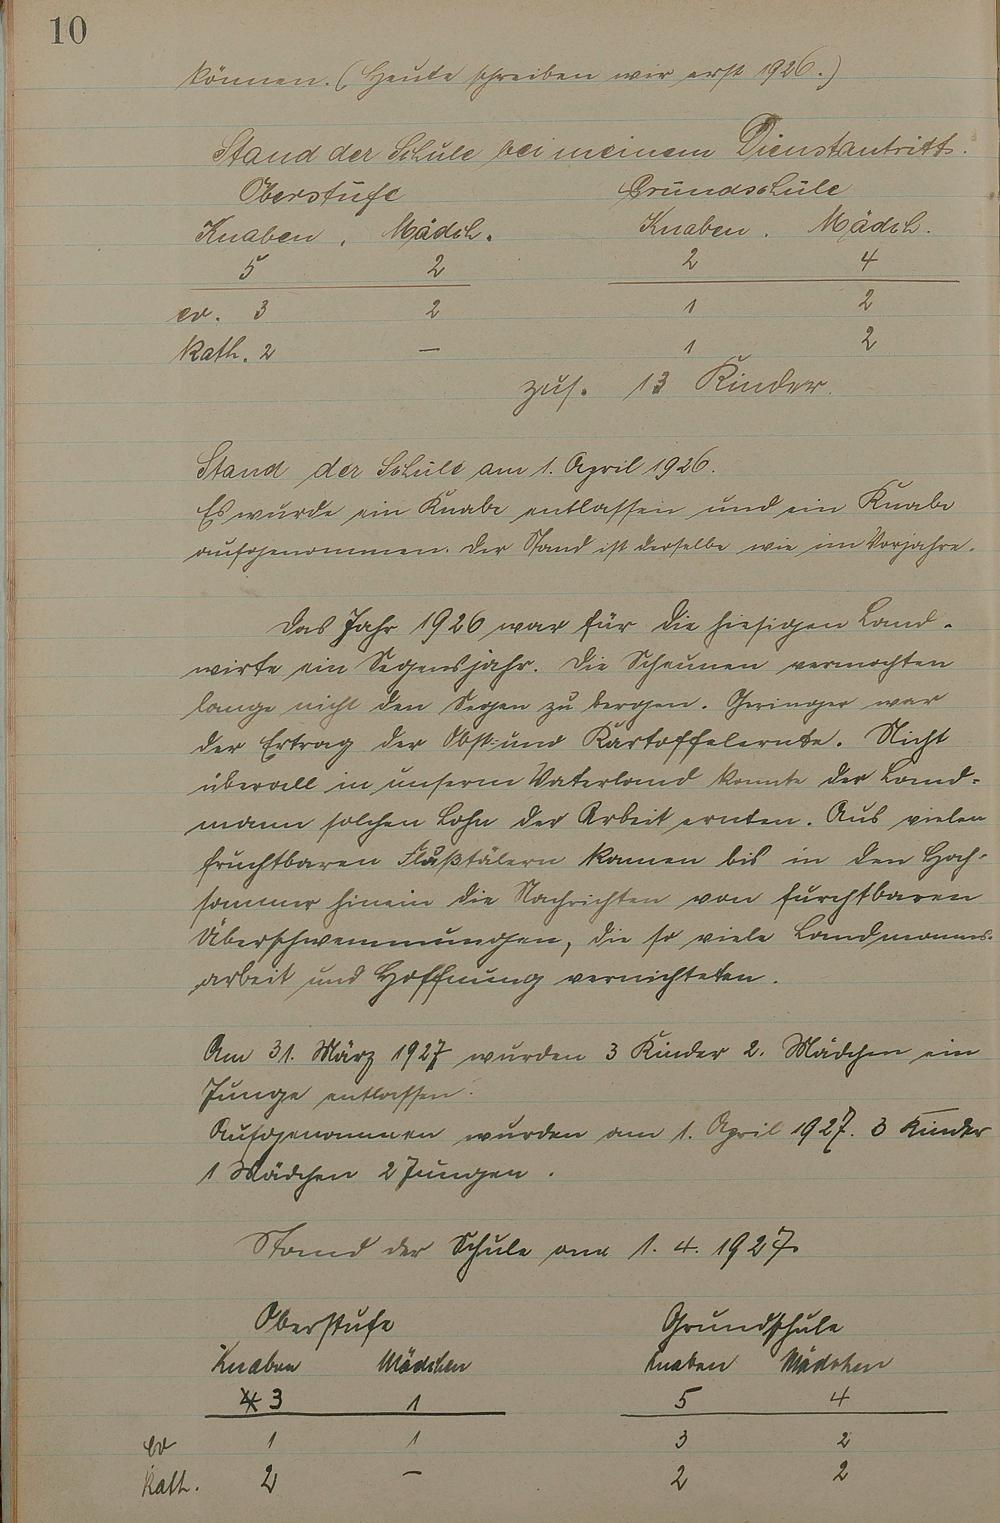 10
können. (Heute schreiben wir erst 1926.)
Stand der Schule bei meinem Dienstantritt.
Oberstufe Grundschule
Knaben. Mädch. Knaben. Mädch.
5 2 2 4
ev. 3 2 1 2
kath. 2 — 1 2
zus. 13 Kinder.
Stand der Schule am 1. April 1926.
Es wurde ein Knabe entlassen und ein Knabe
aufgenommen. Der Stand ist derselbe wie im Vorjahre.
Das Jahr 1926 war für die hiesigen Land-
wirte ein Segensjahr. Die Scheunen vermochten
lange nicht den Segen zu bergen. Geringer war
der Ertrag der Obst- und Kartoffelernte. Nicht
überall in unserm Vaterland konnte der Land-
mann solchen Lohn der Arbeit ernten. Aus vielen
fruchtbaren Flußtälern kamen bis in den Hoch-
sommer hinein die Nachrichten von furchtbaren
Überschwemmungen, die so viele Landmanns-
arbeit und Hoffnung vernichteten.
Am 31. März 1927 wurden 3 Kinder 2. Mädchen ein
Junge entlassen.
Aufgenommen wurden am 1. April 1927. 3 Kinder
1 Mädchen 2 Jungen.
Stand der Schule am 1. 4. 1927.
Oberstufe Grundschule
Knaben Mädchen Knaben Mädchen
4 3 1 5 4
ev 1 1 3 2
kath. 2 — 2 2